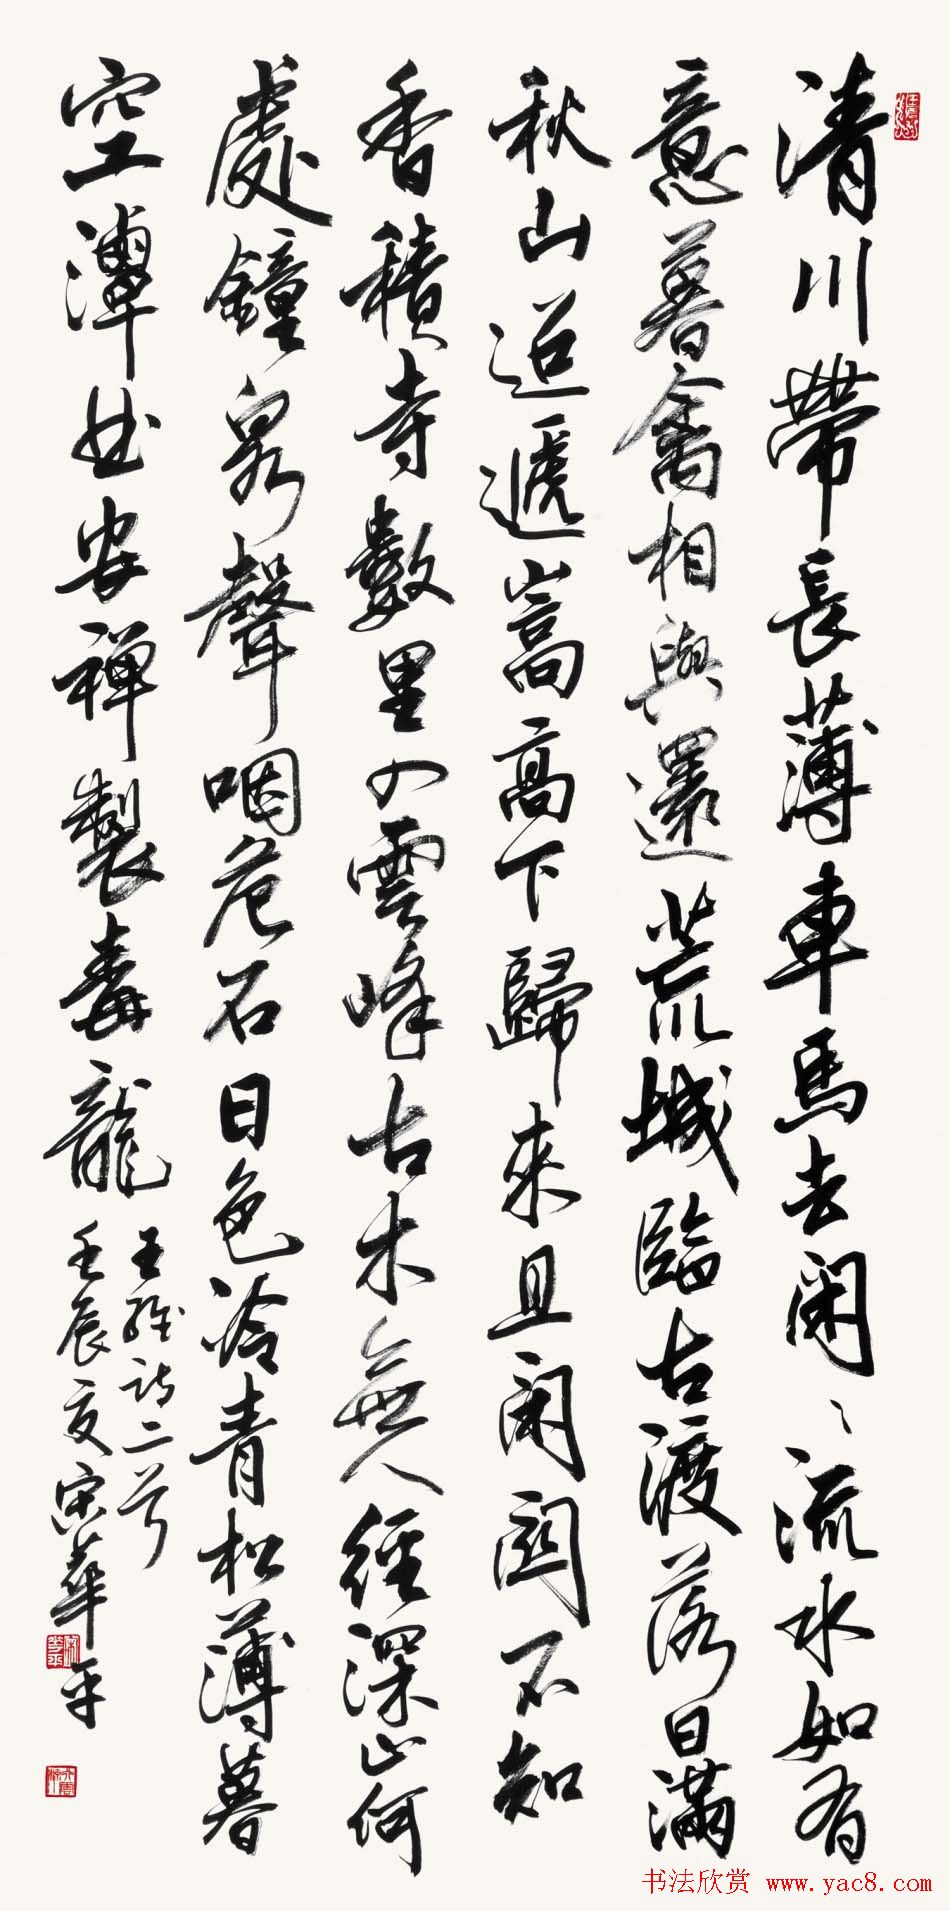 清川帶長薄車馬去閑〻流水如有
意暮禽相與還荒城臨古渡落日滿
秋山迢遞嵩高下歸來且閑關不知
香積寺數里入雲峰古木無人經深山何
處鐘泉聲咽危石日色冷青松薄暮
空潭曲安禪製毒龍
王維詩二首
壬辰夏宋華平
书法欣赏 www.yac8.com